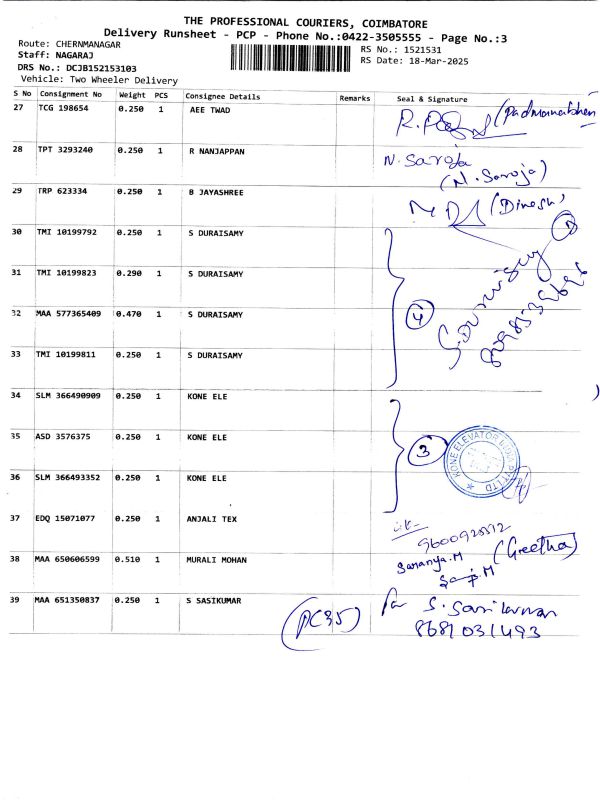 THE PROFESSIONAL COURIERS, COIMBATORE
Delivery Runsheet - PCP - Phone No.:0422-3505555 - Page No.:3
Route: CHERNMANAGAR
Staff: NAGARAJ
DRS No.: DCJB152153103
Vehicle: Two Wheeler Delivery
RS No.: 1521531
RS Date: 18-Mar-2025
S No Consignment No Weight PCS Consignee Details Remarks Seal & Signature
27 TCG 198654 0.250 1 AEE TWAD (Padmanabhan
28 TPT 3293240 0.250 1 R NANJAPPAN N. Saroja
(N. Saroja)
29 TRP 623334 0.250 1 B JAYASHREE (Dinesh)
30 TMI 10199792 0.250 1 S DURAISAMY
31 TMI 10199823 0.290 1 S DURAISAMY
32 MAA 577365409 0.470 1 S DURAISAMY 4
33 TMI 10199811 0.250 1 S DURAISAMY
34 SLM 366490909 0.250 1 KONE ELE
35 ASD 3576375 0.250 1 KONE ELE 3
KONE ELEVATOR INDIA PVT LTD
36 SLM 366493352 0.250 1 KONE ELE
37 EDQ 15071077 0.250 1 ANJALI TEX
(Greetha)
38 MAA 650606599 0.510 1 MURALI MOHAN Sananya.M
39 MAA 651350837 0.250 1 S SASIKUMAR For S. Sasikumar
8681031493
(PC35)